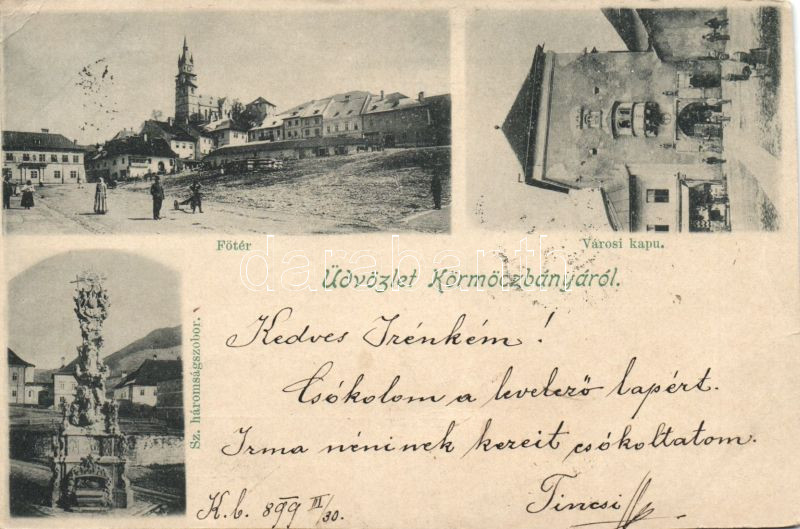 Főtér
Városi kapu.
Üdvözlet Körmöczbányáról.
Sz. háromságszobor.
Kedves Irénkém!
Csókolom a levelező lapért.
Irma néninek kezeit csókoltatom.
Tincsi
K. b. 899 III/30.
darabanth